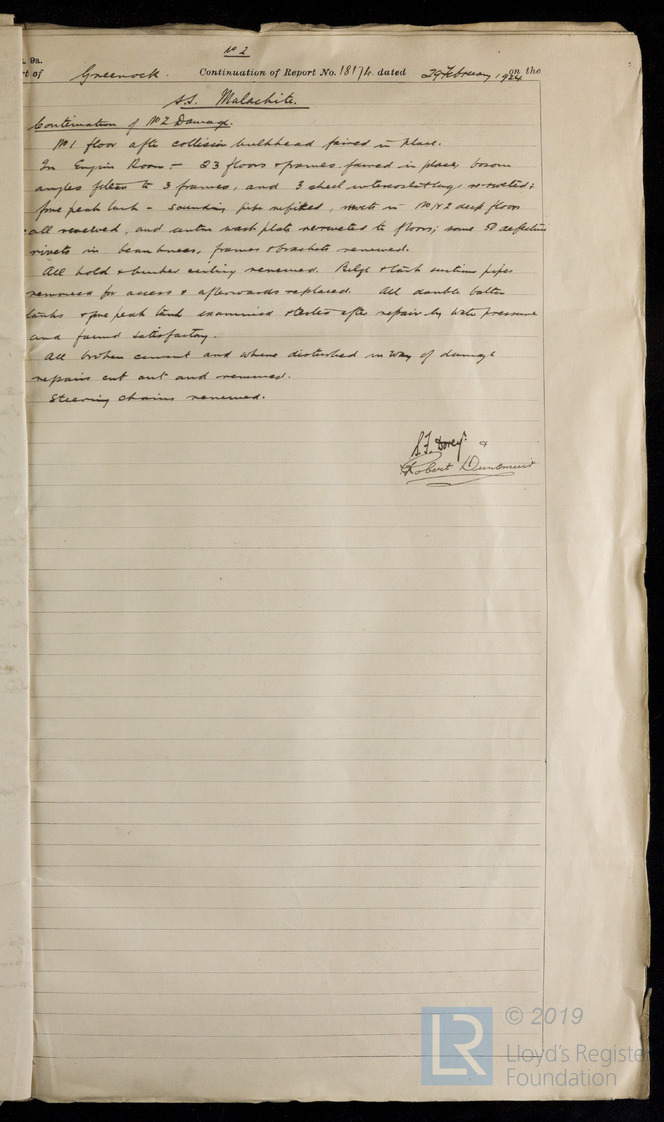 No 2
9a.
rt of Greenock. Continuation of Report No. 18174 dated 29 February 1924 on the
S.S. Malachite.
Continuation of No 2 Damage.
No 1 floor aft collision bulkhead faired in place.
In Engine Room :- 23 floors & frames faired in place, bosom
angles fitted to 3 frames, and 3 shell intercostal lugs re-riveted;
fore peak tank - sounding pipe refitted, rivets in No 1 & 2 deep floors
all renewed, and centre wash plate reriveted to floors; some 50 defective
rivets in beam knees, frames & brackets renewed.
All hold & bunker ceiling renewed. Bilge & tank suction pipes
removed for access & afterwards replaced. All double bottom
tanks & fore peak tank examined & tested after repair by water pressure
and found satisfactory.
All broken cement and where disturbed in way of damage
repairs cut out and renewed.
Steering chains renewed.
S.F. Dorey &
Robert Dunsmuir
LR
© 2019
Lloyd's Register
Foundation